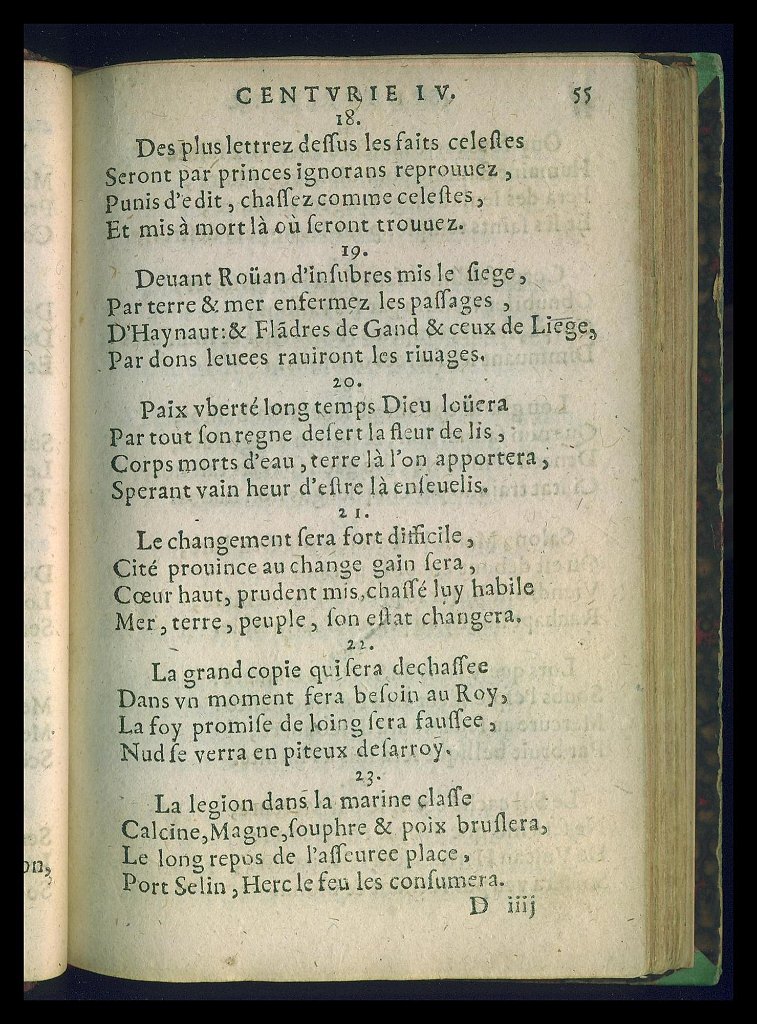 CENTVRIE IV. 55
18.
Des plus lettrez deſſus les faits celeſtes
Seront par princes ignorans reprouuez ,
Punis d'edit , chaſſez comme celeſtes ,
Et mis à mort là où ſeront trouuez.
19.
Deuant Roüan d'inſubres mis le ſiege ,
Par terre & mer enfermez les paſſages ,
D'Haynaut:& Flãdres de Gand & ceux de Liege,
Par dons leuees rauiront les riuages.
20.
Paix vberté long temps Dieu loüera
Par tout ſon regne deſert la fleur de lis ,
Corps morts d'eau , terre là l'on apportera ,
Sperant vain heur d'eſtre là enſeuelis.
21.
Le changement ſera fort difficile ,
Cité prouince au change gain ſera ,
Cœur haut, prudent mis,chaſſé luy habile
Mer , terre , peuple , ſon eſtat changera.
22.
La grand copie qui ſera dechaſſee
Dans vn moment ſera beſoin au Roy,
La foy promiſe de loing ſera fauſſee ,
Nud ſe verra en piteux deſarroy.
23.
La legion dans la marine claſſe
Calcine,Magne,ſouphre & poix bruſlera,
Le long repos de l'aſſeuree place ,
Port Selin , Herc le feu les conſumera.
D iiij
on,